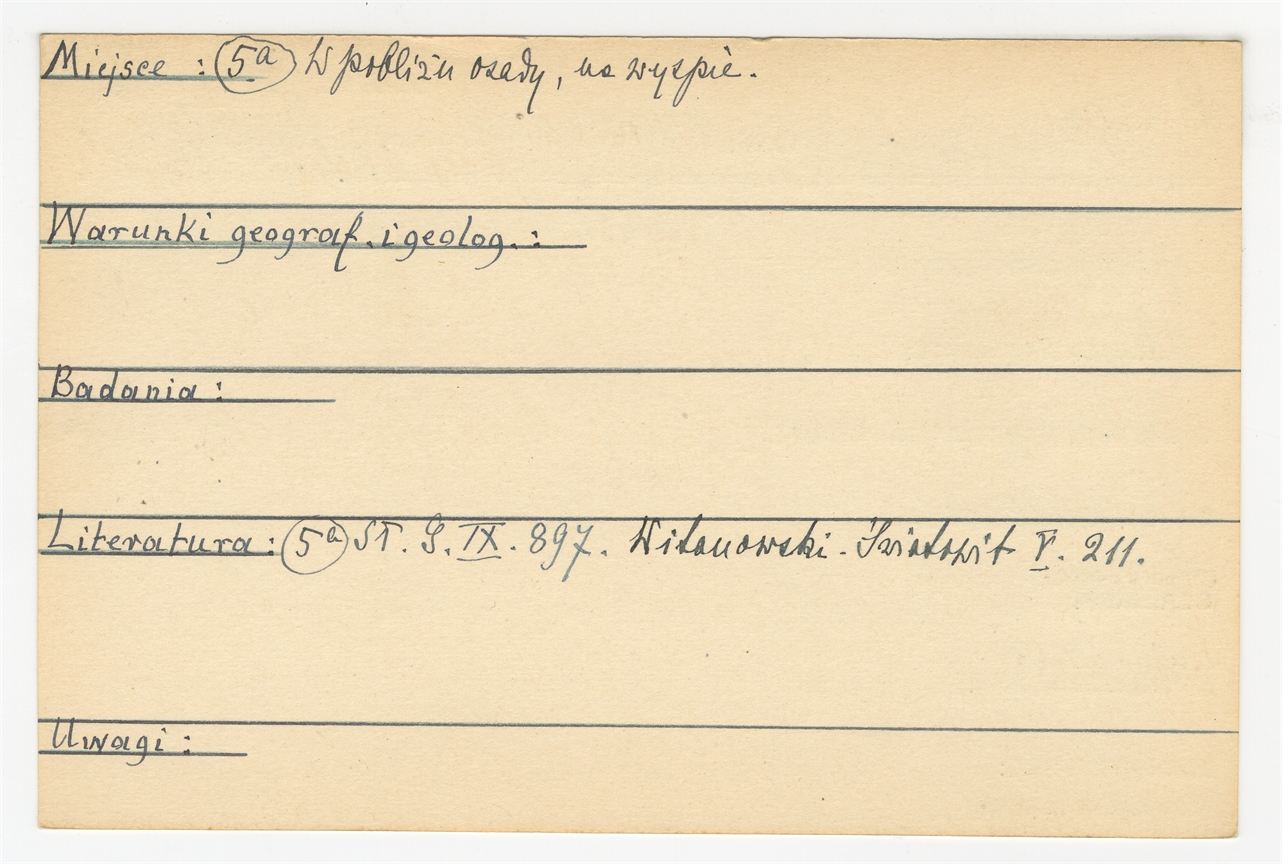 Miejsce : 5a W pobliżu osady, na wyspie.
Warunki geograf. i geolog. :
Badania :
Literatura : 5a ST. G. IX. 897. Witanowski. Światowit V. 211.
Uwagi :